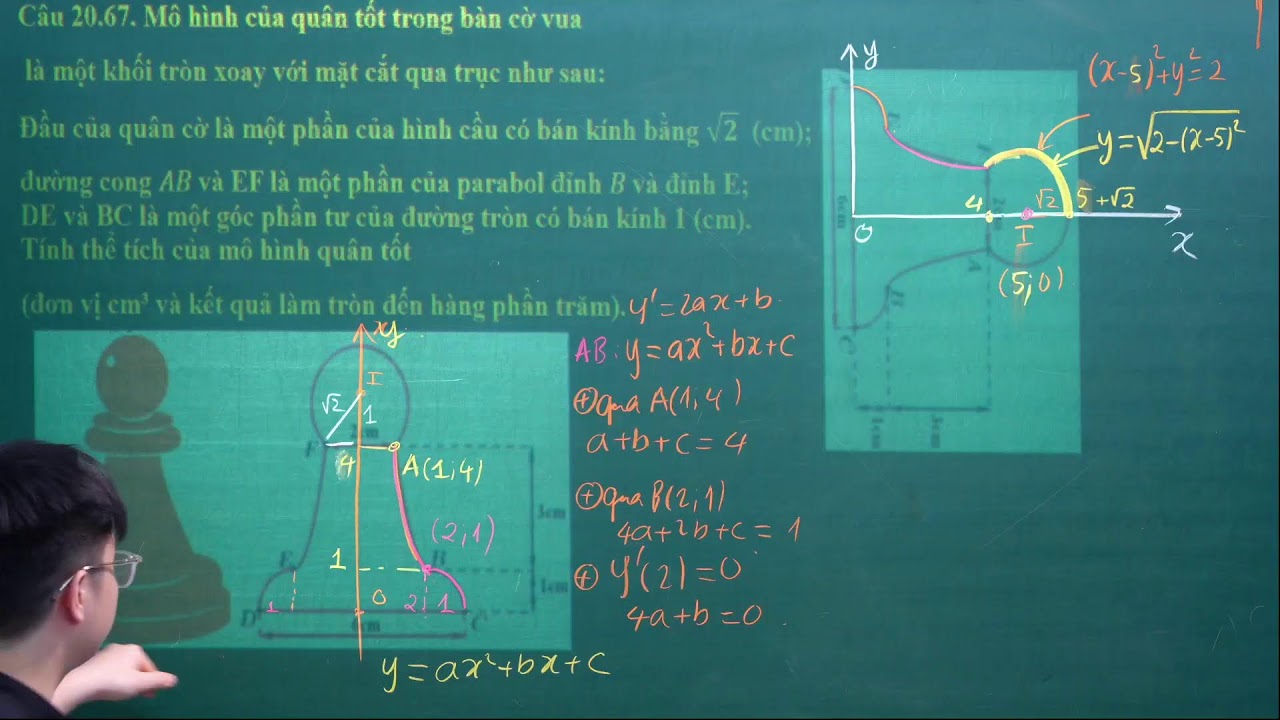 Câu 20.67. Mô hình của quân tốt trong bàn cờ vua
là một khối tròn xoay với mặt cắt qua trục như sau:
Đầu của quân cờ là một phần của hình cầu có bán kính bằng √2 (cm);
đường cong AB và EF là một phần của parabol đỉnh B và đỉnh E;
DE và BC là một góc phần tư của đường tròn có bán kính 1 (cm).
Tính thể tích của mô hình quân tốt
(đơn vị cm³ và kết quả làm tròn đến hàng phần trăm).
y' = 2ax+b
AB: y = ax²+bx+c
⊕ qua A(1;4)
a+b+c = 4
⊕ qua B(2;1)
4a+2b+c = 1
⊕ y'(2) = 0
4a+b = 0
y = ax²+bx+c
I
√2
1
F
4
A(1;4)
(2;1)
3cm
E
1
B
1cm
1
0
2
1
D
C
6cm
y
(x-5)²+y² = 2
y = √2-(x-5)²
4
√2
5+√2
0
I
x
(5;0)
6cm
A
B
C
1cm
3cm